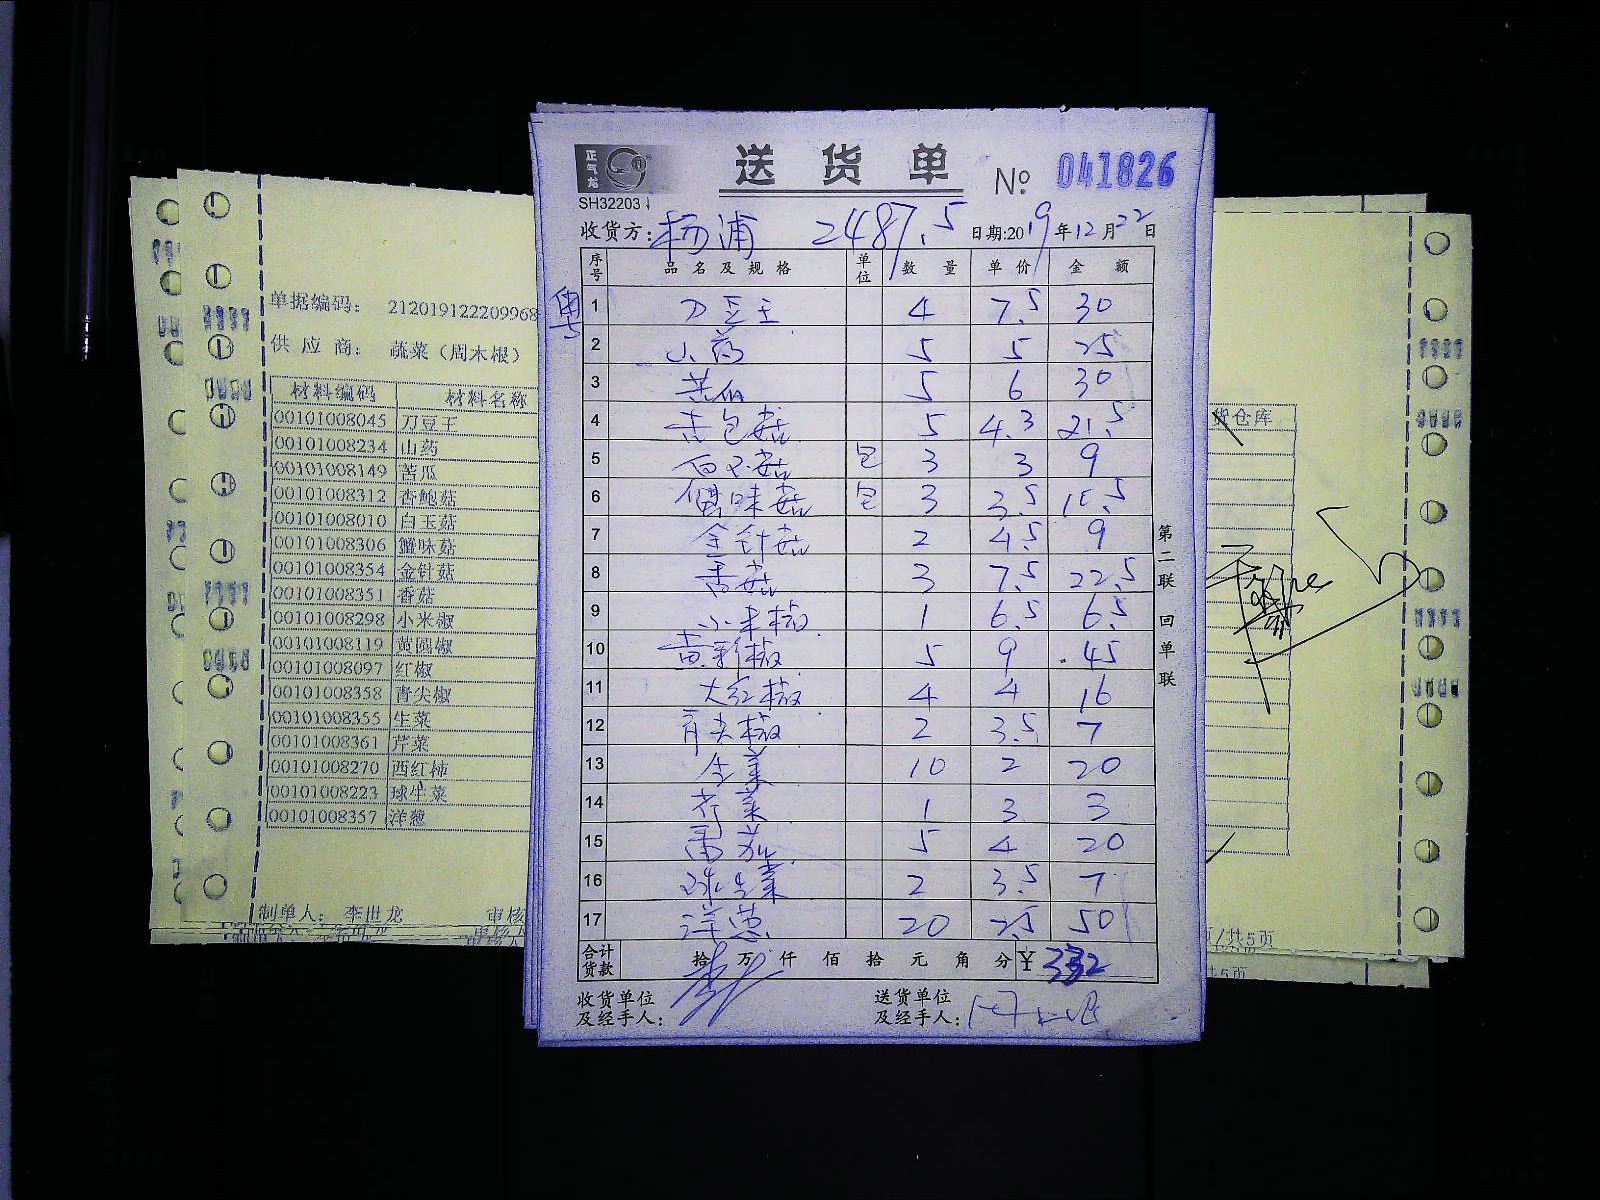 正气龙
送货单
№ 041826
SH32203
收货方: 杨浦 2487.5 日期:2019年12月22日
序号 品名及规格 单位 数量 单价 金额
粤
1 刀豆王 4 7.5 30
2 山药 5 5 25
3 苦瓜 5 6 30
4 杏包菇 5 4.3 21.5
5 白玉菇 包 3 3 9
6 味菇 包 3 3.5 10.5
7 金针菇 2 4.5 9
8 香菇 3 7.5 22.5
9 小米椒 1 6.5 6.5
10 黄彩椒 5 9 45
11 大红椒 4 4 16
12 青尖椒 2 3.5 7
13 生菜 10 2 20
14 芹菜 1 3 3
15 番茄 5 4 20
16 球生菜 2 3.5 7
17 洋葱 20 2.5 50
合计货款 拾 万 仟 佰 拾 元 角 分 ¥ 332
收货单位及经手人:
送货单位及经手人:
第二联 回单联
单据编码: 212019122209968
供应商: 蔬菜(周木根)
材料编码 材料名称
00101008045 刀豆王
00101008234 山药
00101008149 苦瓜
00101008312 杏鲍菇
00101008010 白玉菇
00101008306 蟹味菇
00101008354 金针菇
00101008351 香菇
00101008298 小米椒
00101008119 黄圆椒
00101008097 红椒
00101008358 青尖椒
00101008355 生菜
00101008361 芹菜
00101008270 西红柿
00101008223 球生菜
00101008357 洋葱
制单人: 李世龙 审核
货仓库
页/共5页
共5页